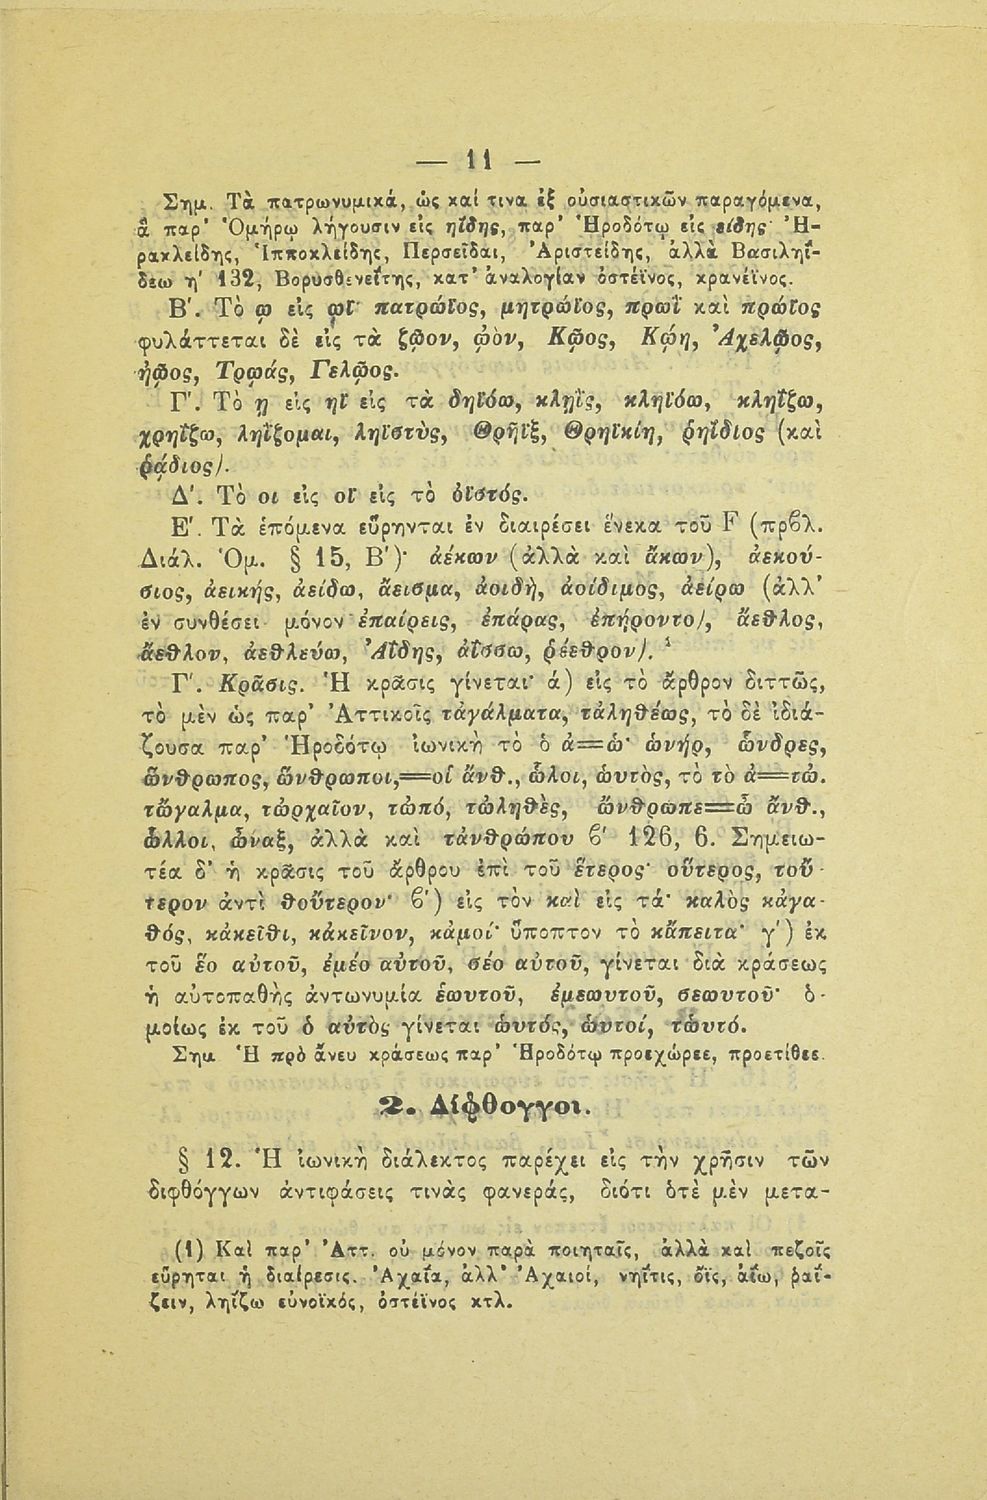 — 11 —
Σημ. Τὰ πατρωνυμικά, ὡς καί τινα ἐξ οὐσιαστικῶν παραγόμενα,
ἃ παρ' Ὁμήρῳ λήγουσιν εἰς ηΐδης, παρ' Ἡροδότῳ εἰς είδης· Ἡ-
ρακλείδης, Ἱπποκλείδης, Περσεῖδαι, Ἀριστείδης, ἀλλὰ Βασιληΐ-
δεω η' 132, Βορυσθενεΐτης, κατ' ἀναλογίαν ὀστέϊνος, κρανέϊνος.
Β'. Τὸ ῳ εἰς ωϊ· πατρώϊος, μητρώϊος, πρωῒ καὶ πρώϊος
φυλάττεται δὲ εἰς τὰ ζῷον, ᾠὸν, Κῷος, Κῴη, Ἀχελῷος,
ἠῷος, Τρῳάς, Γελῷος.
Γ'. Τὸ ῃ εἰς ηϊ εἰς τὰ δηϊόω, κληῒς, κληϊόω, κληΐζω,
χρηΐζω, ληΐζομαι, ληϊστὺς, Θρῆϊξ, Θρηϊκίη, ῥηΐδιος (καὶ
ῥᾴδιος).
Δ'. Τὸ οι εἰς οϊ εἰς τὸ ὀϊστός.
Ε'. Τὰ ἑπόμενα εὕρηνται ἐν διαιρέσει ἕνεκα τοῦ F (πρβλ.
Διάλ. Ὁμ. § 15, Β')· ἀέκων (ἀλλὰ καὶ ἄκων), ἀεκού-
σιος, ἀεικής, ἀείδω, ἄεισμα, ἀοιδὴ, ἀοίδιμος, ἀείρω (ἀλλ'
ἐν συνθέσει μόνον ἐπαίρεις, ἐπάρας, ἐπήροντο), ἄεθλος,
ἄεθλον, ἀεθλεύω, Ἀΐδης, ἀΐσσω, ῥέεθρον). ¹
Γ'. Κρᾶσις. Ἡ κρᾶσις γίνεται· ά) εἰς τὸ ἄρθρον διττῶς,
τὸ μὲν ὡς παρ' Ἀττικοῖς τἀγάλματα, τἀληθέως, τὸ δὲ ἰδιά-
ζουσα παρ' Ἡροδότῳ ἰωνικὴ τὸ ὁ ἀ=ὡ· ὡνήρ, ὧνδρες,
ὥνθρωπος, ὥνθρωποι,=οἱ ἄνθ., ὧλοι, ὡυτὸς, τὸ τὸ ἀ=τὠ.
τὤγαλμα, τὠρχαῖον, τὠπό, τὠληθὲς, ὤνθρωπε=ὦ ἄνθ.,
ὧλλοι, ὦναξ, ἀλλὰ καὶ τἀνθρώπου β' 126, 6. Σημειω-
τέα δ' ἡ κρᾶσις τοῦ ἄρθρου ἐπὶ τοῦ ἕτερος· οὕτερος, τοὔ-
τερον ἀντὶ θοὔτερον· β') εἰς τὸν καὶ εἰς τά· καλὸς κἀγα-
θός, κἀκεῖθι, κἀκεῖνον, κἀμοί· ὕποπτον τὸ κἄπειτα· γ') ἐκ
τοῦ ἕο αὐτοῦ, ἐμέο αὐτοῦ, σέο αὐτοῦ, γίνεται διὰ κράσεως
ἡ αὐτοπαθὴς ἀντωνυμία ἑωυτοῦ, ἐμεωυτοῦ, σεωυτοῦ· ὁ-
μοίως ἐκ τοῦ ὁ αὐτὸς γίνεται ὡυτός, ὡυτοί, τὠυτό.
Σημ. Ἡ πρὸ ἄνευ κράσεως παρ' Ἡροδότῳ προεχώρεε, προετίθεε.
2. Δίφθογγοι.
§ 12. Ἡ ἰωνικὴ διάλεκτος παρέχει εἰς τὴν χρῆσιν τῶν
διφθόγγων ἀντιφάσεις τινὰς φανεράς, διότι ὁτὲ μὲν μετα-
(1) Καὶ παρ' Ἀττ. οὐ μόνον παρὰ ποιηταῖς, ἀλλὰ καὶ πεζοῖς
εὕρηται ἡ διαίρεσις. Ἀχαΐα, ἀλλ' Ἀχαιοί, νηΐτις, ὄϊς, ἀΐω, ῥαΐ-
ζειν, ληΐζω εὐνοϊκός, ὀστέϊνος κτλ.